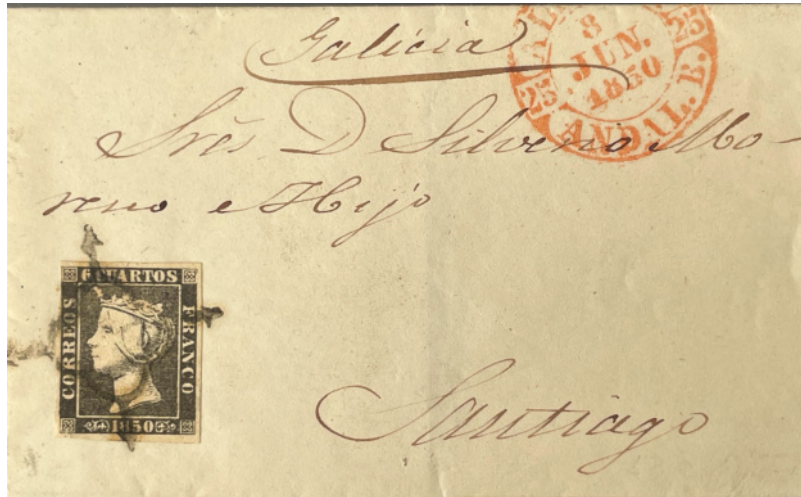 Galicia
8
JUN.
1850
25 25
ANDAL. B.
Sres D Silverio Mo-
reno e Hijo
6 CUARTOS
CORREOS
FRANCO
1850
Santiago